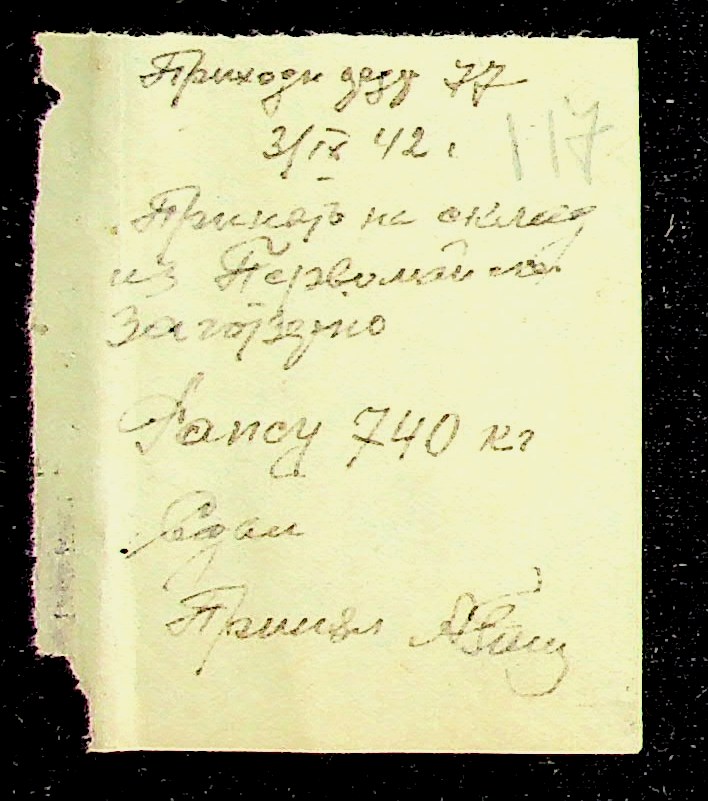 Приходн деду 77
3/IX 42 г.
117
Принято на склад
из Первомайска
Заготзерно
Рапсу 740 кг
Сдал
Принял